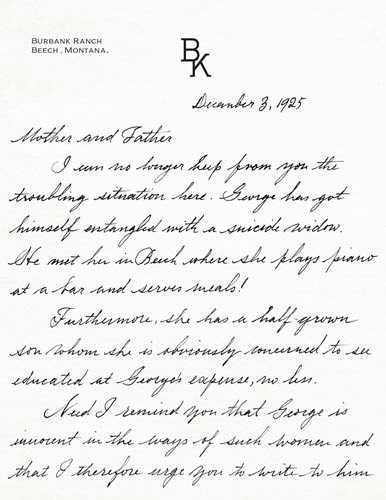 BURBANK RANCH
BEECH, MONTANA.
BK
December 3, 1925
Mother and Father
I can no longer keep from you the
troubling situation here. George has got
himself entangled with a suicide widow.
He met her in Beech where she plays piano
at a bar and serves meals!
Furthermore, she has a half-grown
son whom she is obviously concerned to see
educated at George's expense, no less.
Need I remind you that George is
innocent in the ways of such women and
that I therefore urge you to write to him